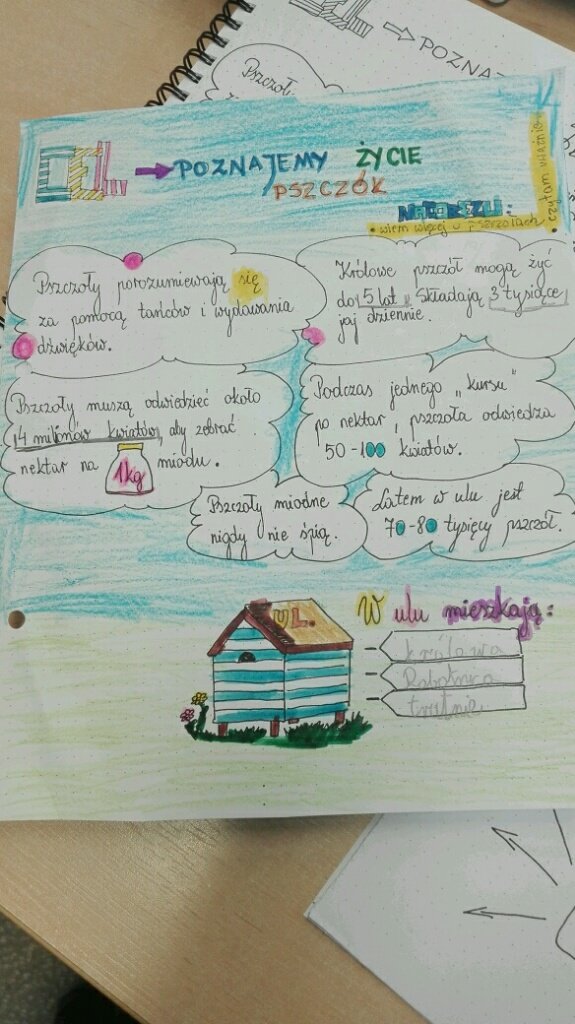 CEL
POZNAJEMY ŻYCIE
PSZCZÓŁ
NACOBEZU:
• wiem więcej o pszczołach
• czytam uważnie
Pszczoły porozumiewają się
za pomocą tańców i wydawania
dźwięków.
Królowe pszczół mogą żyć
do 5 lat. Składają 3 tysiące
jaj dziennie.
Pszczoły muszą odwiedzić około
14 milionów kwiatów, aby zebrać
nektar na 1kg miodu.
Podczas jednego "kursu"
po nektar, pszczoła odwiedza
50-100 kwiatów.
Pszczoły miodne
nigdy nie śpią.
Latem w ulu jest
70-80 tysięcy pszczół.
UL.
W ulu mieszkają:
królowa
Robotnica
trutnie
Pszczoły
POZNA